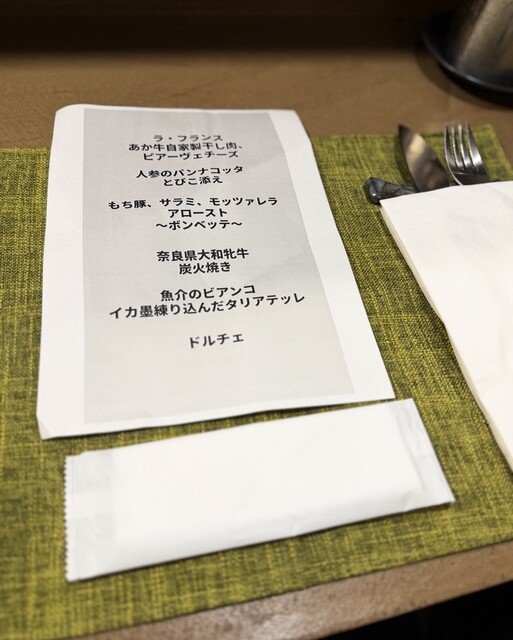 ラ・フランス
あか牛自家製干し肉、
ビアーヴェチーズ
人参のパンナコッタ
とびこ添え
もち豚、サラミ、モッツァレラ
アロースト
～ボンベッテ～
奈良県大和牝牛
炭火焼き
魚介のビアンコ
イカ墨練り込んだタリアテッレ
ドルチェ